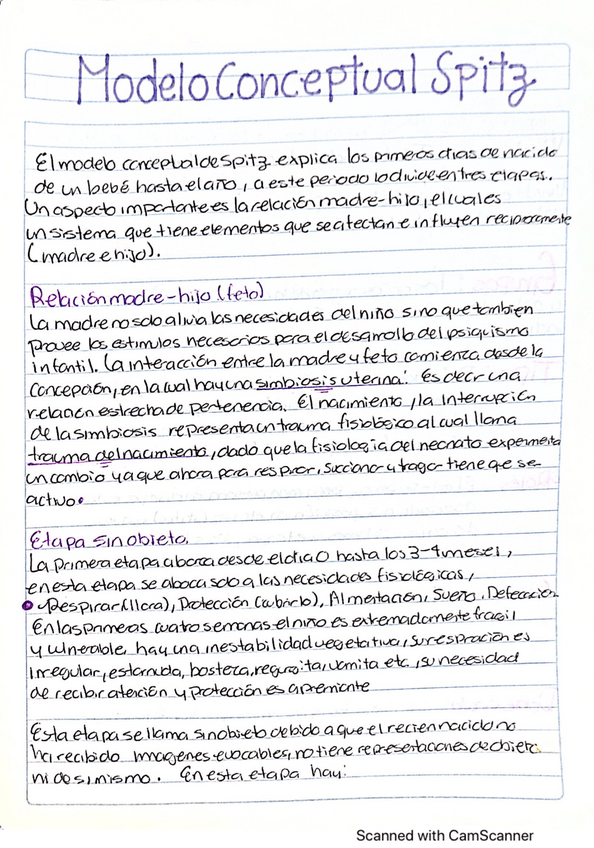 Modelo Conceptual Spitz
El modelo conceptual de Spitz explica los primeros dias de nacido
de un bebé hasta el año, a este periodo lo divide en tres etapas.
Un aspecto importante es la relación madre-hijo, el cual es
un sistema que tiene elementos que se afectan e influyen reciprocamente
(madre e hijo).
Relación madre-hijo (feto)
La madre no solo alivia las necesidades del niño sino que tambien
provee los estimulos necesarios para el desarrollo del psiquismo
infantil. La interacción entre la madre y feto comienza desde la
concepción, en la cual hay una simbiosis uterina. Es decir una
relación estrecha de pertenencia. El nacimiento, la interrupción
de la simbiosis representa un trauma fisiológico al cual llama
trauma del nacimiento, dado que la fisiologia del neonato experimenta
un cambio ya que ahora para respirar, succionar y tragar tiene que se-
activo.
Etapa sin objeto.
La primera etapa aborca desde el dia 0 hasta los 3-4 meses,
en esta etapa se aboca solo a las necesidades fisiológicas,
Respirar (llora), Protección (cubrirlo), Alimentación, Sueño, Defecación.
En las primeras cuatro semanas el niño es extremadamente fragil
y vulnerable, hay una inestabilidad vegetativa, su respiración es
irregular, estornuda, bosteza, regurgita, vomita etc, su necesidad
de recibir atención y protección es apremiante
Esta etapa se llama sin objeto debido a que el recien nacido no
ha recibido imagenes evocables, no tiene representaciones de objeto
ni de si mismo. En esta etapa hay:
Scanned with CamScanner